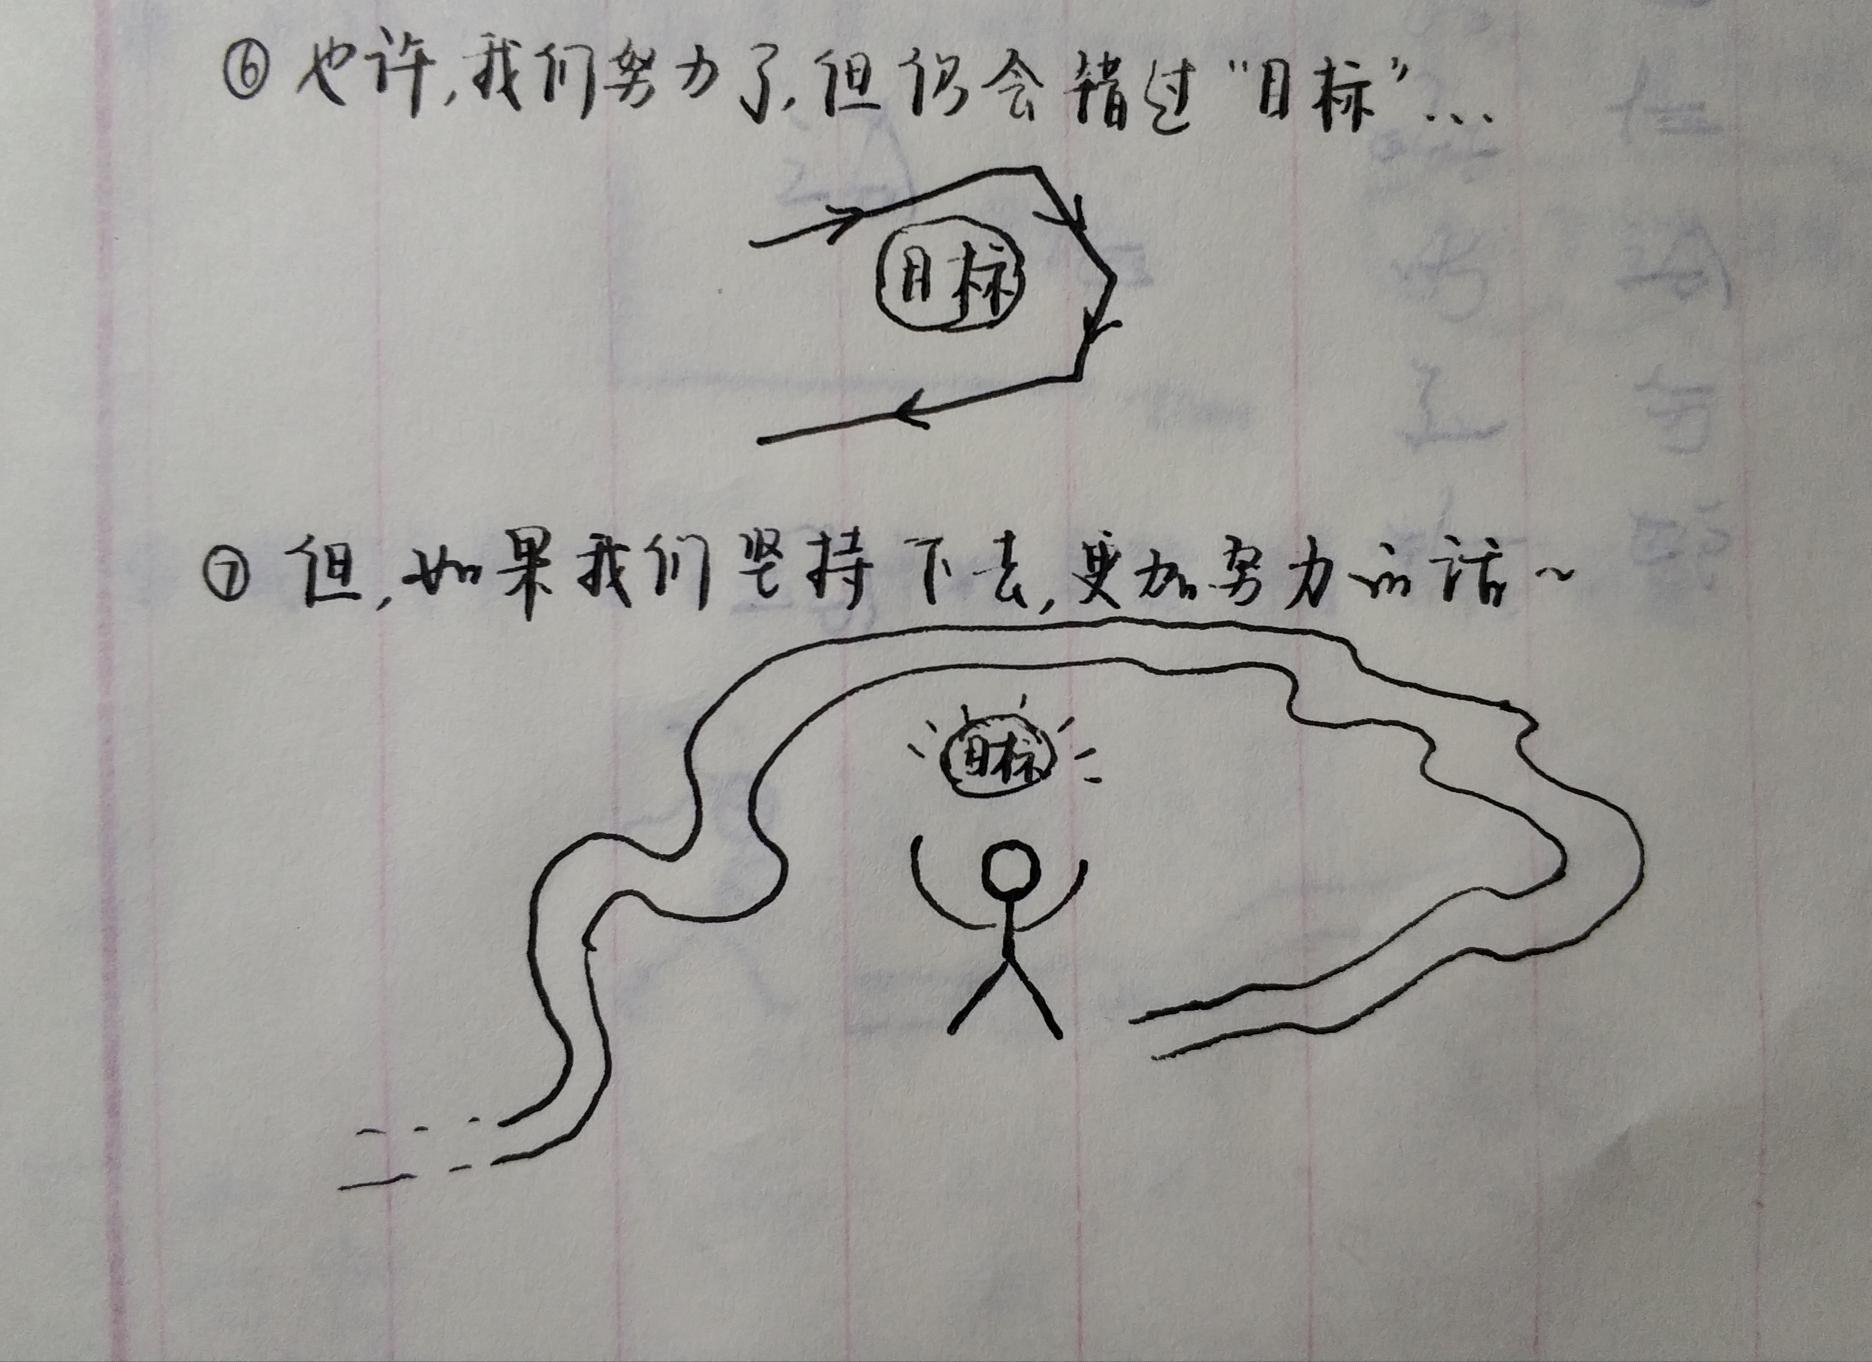 ⑥ 也许,我们努力了,但仍会错过“目标”...
目标
⑦ 但,如果我们坚持下去,更加努力的话~
目标